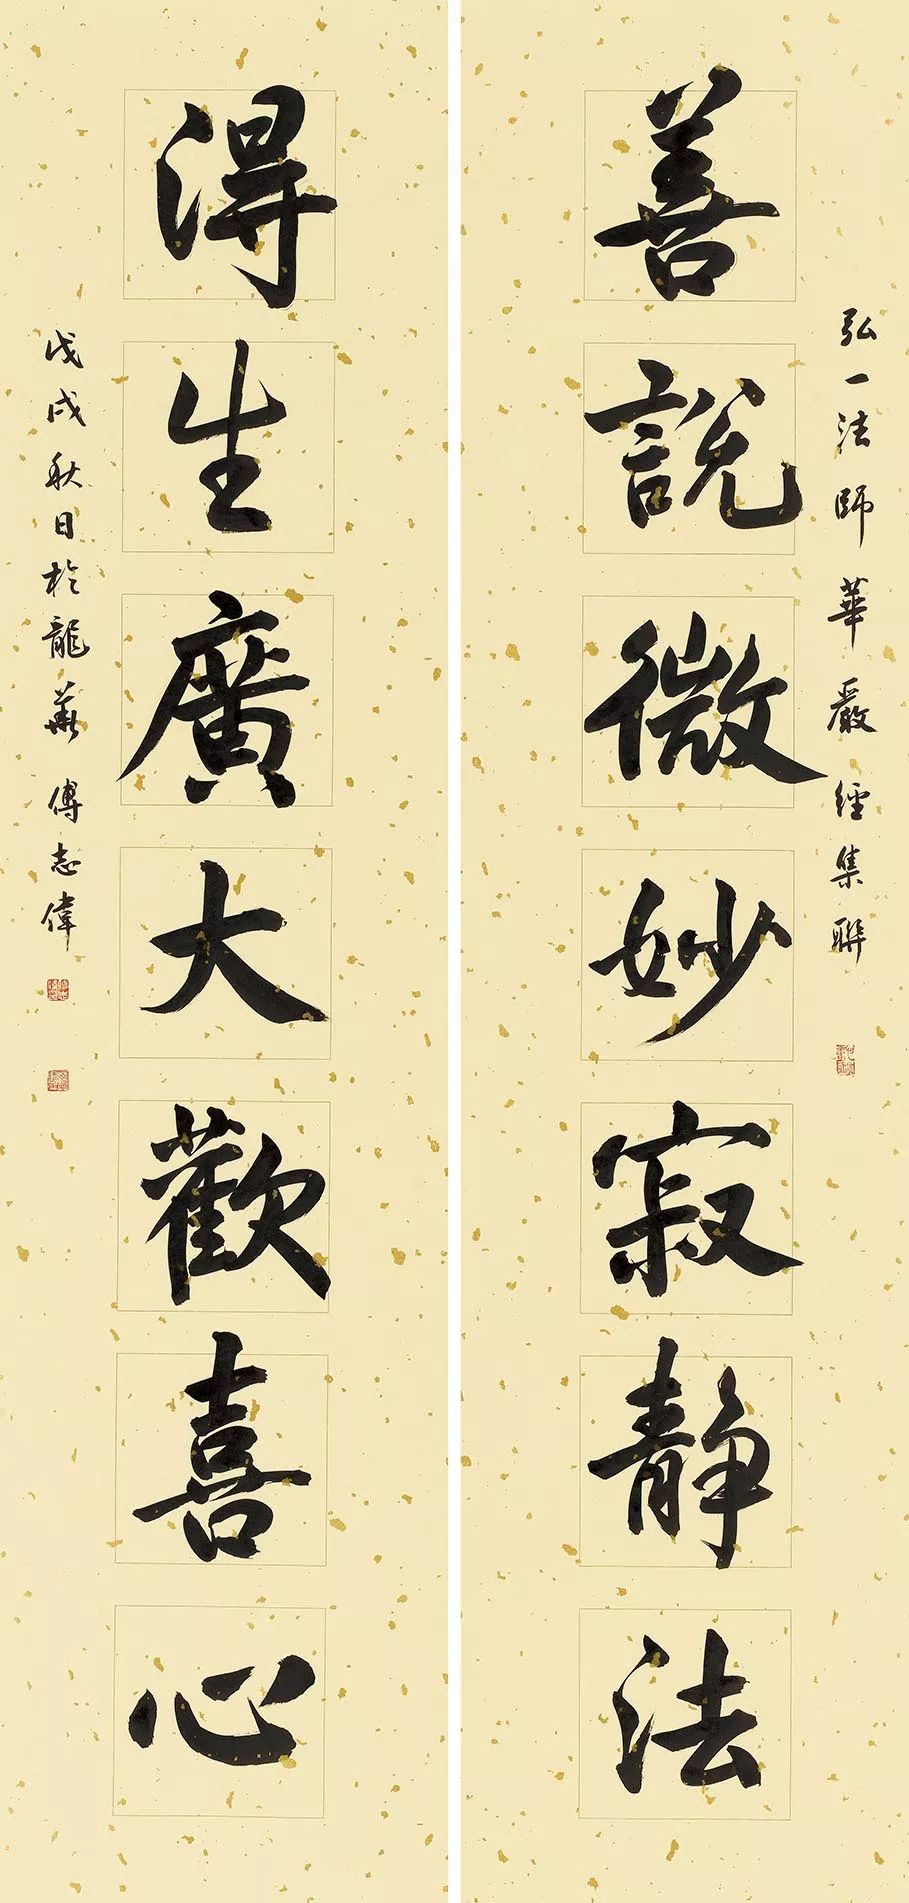 弘一法師華嚴經集聯
善說微妙寂静法
得生廣大歡喜心
戊戌秋日於龍華傅志偉